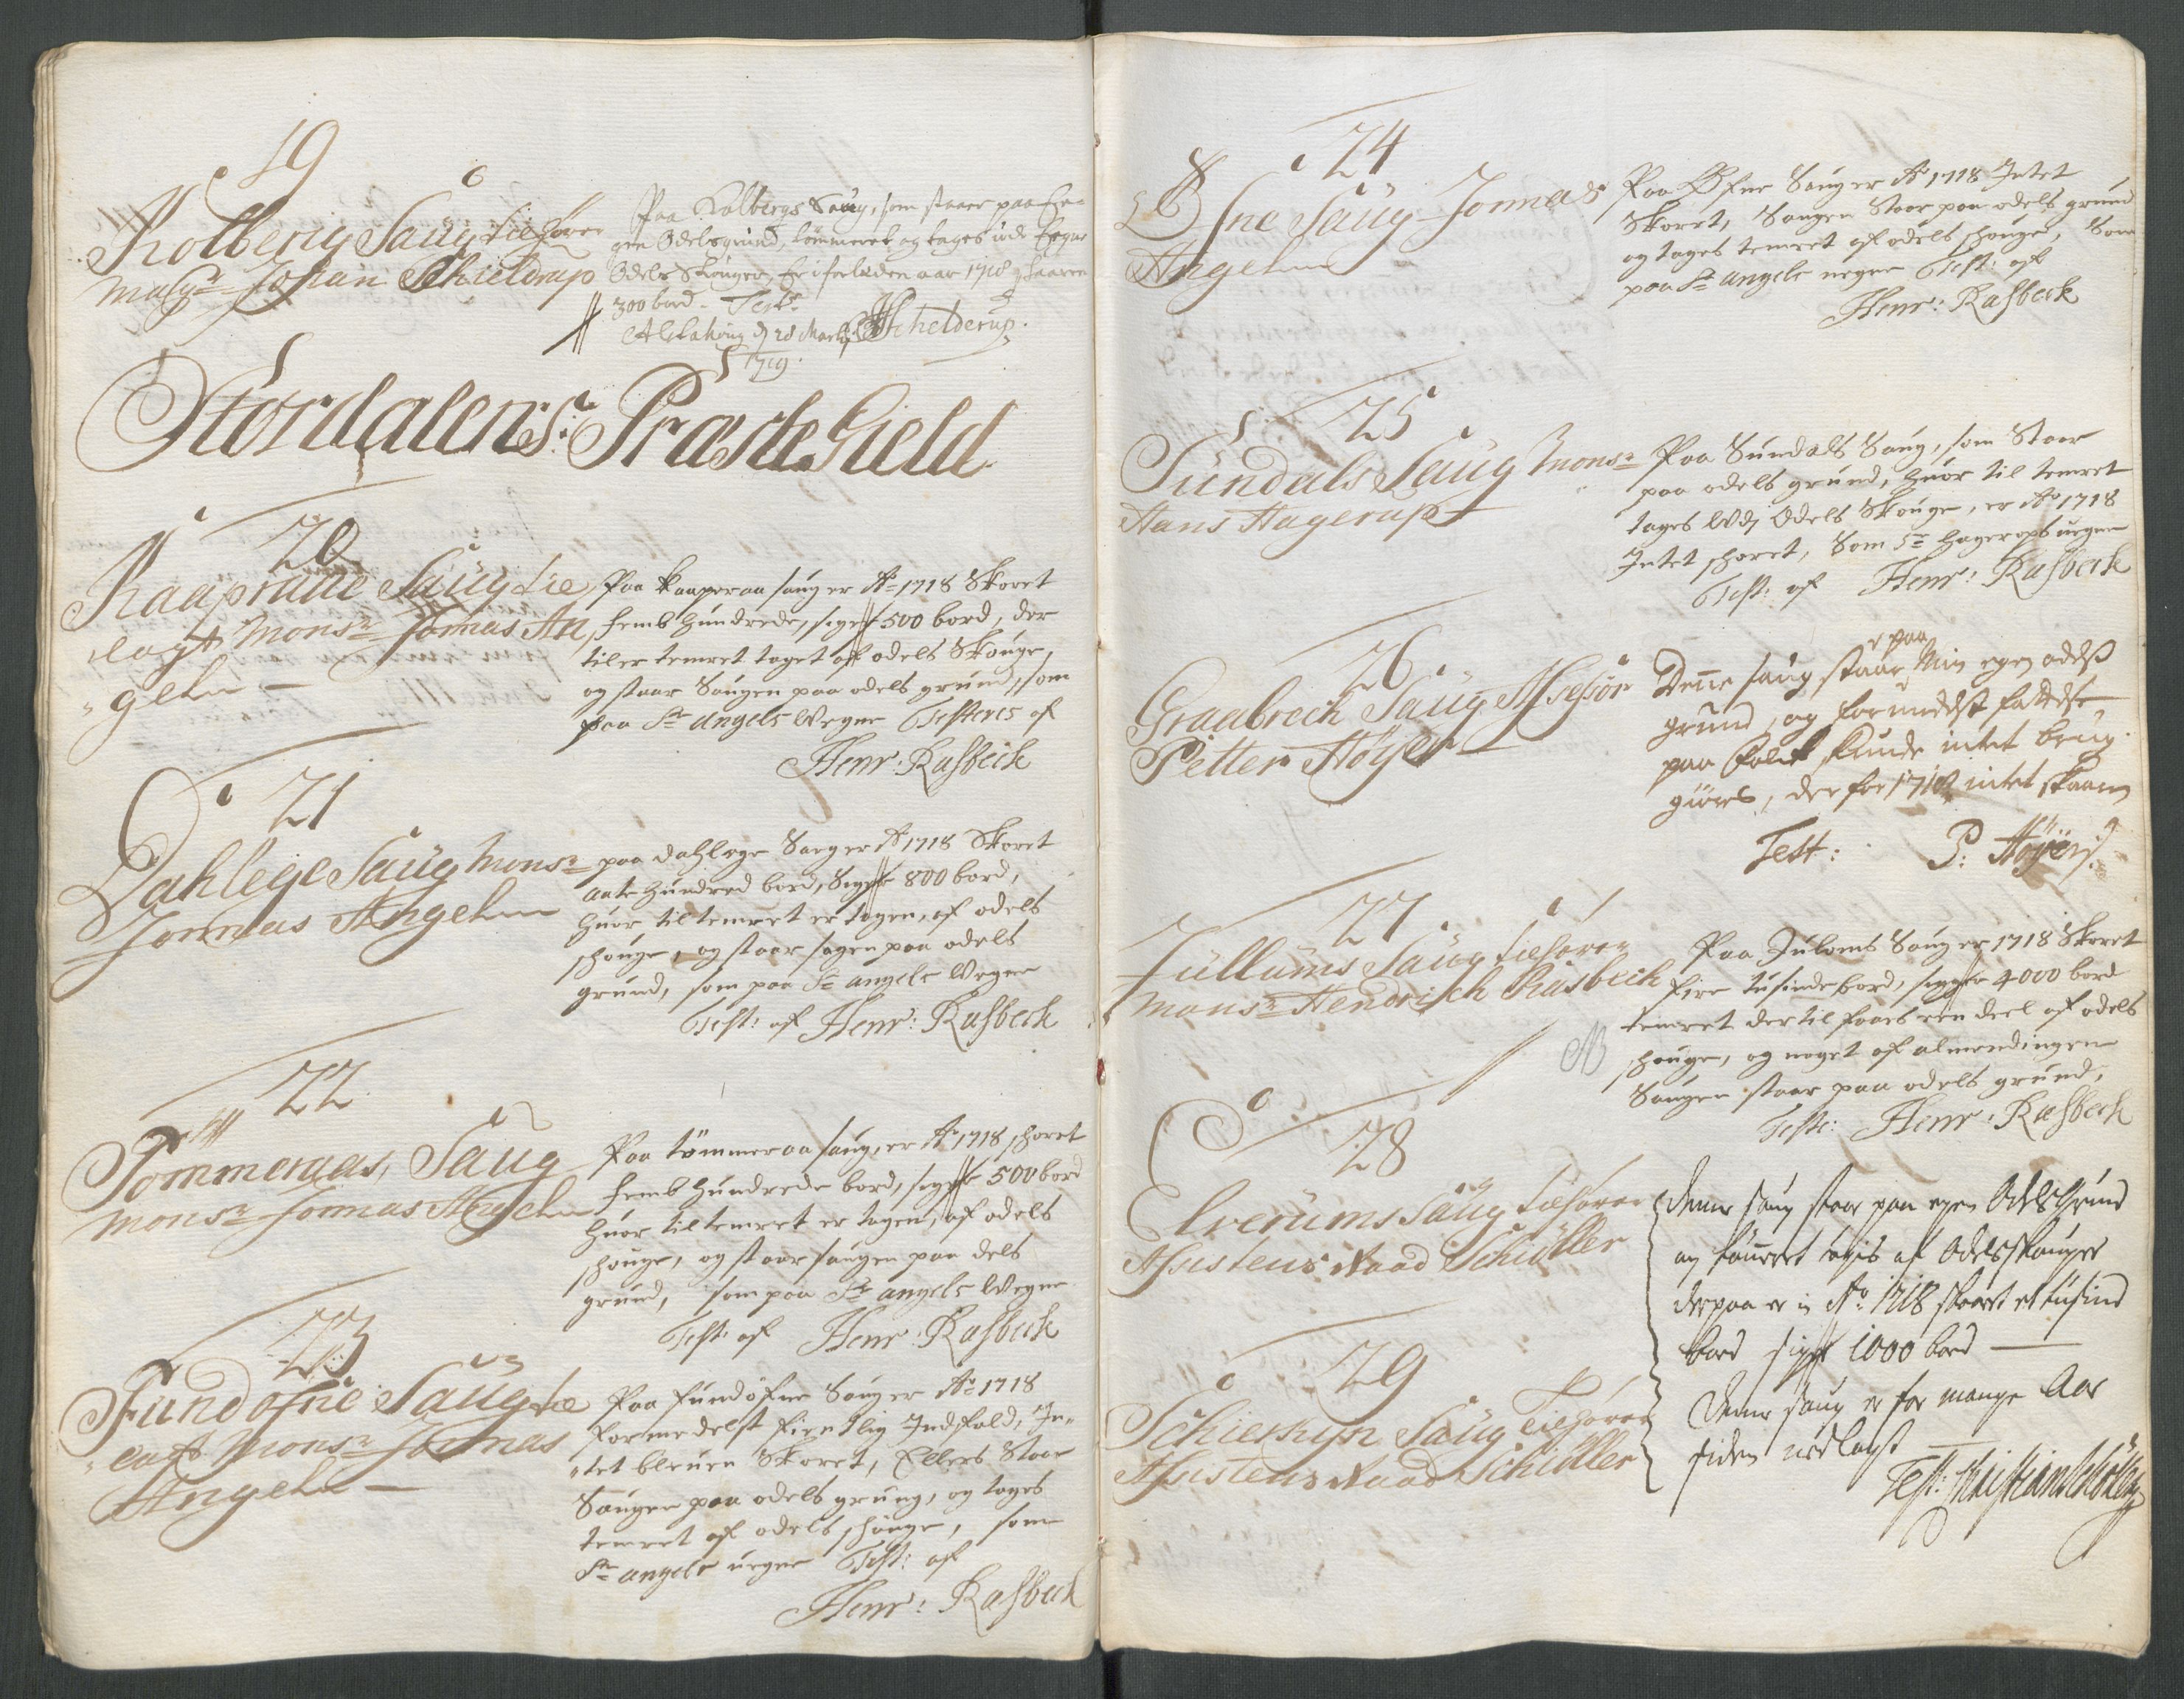 19
Kolberg Saug tilhører
Johan Schielderup
Paa Kolbergs Saug, som staaer paa Ee-
gen Odelsgrund, tømmeret og tages
Odels Skouger, Er i forleden aar 1718 skaaren
300 bord. Test.
d 28 Martij Schelderup.
1719.
Størdalens Præste Gield
20
Raapraae Saug tie
lagt Monsr Jonnas An
geln
Paa Raaperaa saug er Ao 1718 Skoret
femb hundrede, siger 500 bord, der
til er temret taget af odels Skouge,
og staar Saugen paa odels grund, som
paa Sr Angels Vegne Testeres af
Henr: Rasbech
21
Dahlege Saug Monsr
Jonnas Angeln
paa dahlege Saug er Ao 1718 Skoret
aate hundred bord, Siger 800 bord,
huor til temret er tagen, af odels
skouge, og staar sagen paa odels
grund, som paa Sr angels Vegne
Test: af Henr: Rasbech
22
Tømmeraas, Saug
Monsr Jonnas Angeln
Paa tømmeraa saug, er Ao 1718 skoret
femb hundrede bord, siger 500 bord
huor til temret er tagen, af odels
skouge, og staar saugen paa dels
grund, som paa Sr angels Vegne
Test: af Henr: Rasbech
23
Fundofne Saug tie
lagt Monsr Jonnas
Angeln
Paa fundøfne Saug er Ao 1718
formedelst fiendtlig Indfald, In-
tet bleuen Skoret, Ellers Staar
Saugen paa odels grung, og tages
temret af odels skouge, som
Sr angels uegne Test: af
Henr: Rasbech
24
Øfne Saug Jonnas
Angeln
Paa Øfne Saug er Ao 1718 Intet
Skoret, Saugen Staar paa odels grund
og tages temret af odels skouge, Som
paa Sr angels uegne Test: af
Henr: Rasbech
25
Sundals Saug Monsr
Hans Hagerup
Paa Sundals Saug, som Staar
paa odels grund, huor til temret
tages Udj Odels Skouge, er Ao 1718
Intet skoret, Som Sr Hagerups uegne
Test: af Henr: Rasbech
26
Graabrech Saug Assessor
Petter Høyer
Denne saug staar paa Min egen odelß
grund, og formedelst fattelse
paa Folck kunde intet brug
giøres, derfor 1718 intet skaaren
Test: P: Høyer
27
Jullums Saug tilhører
Monsr Hendrich Rasbech
Paa Julloms Saug er 1718 Skoret
fire tusinde bord, siger 4000 bord
temret der til faaes een deel af odels
skouge, og noget af almendingen
Saugen staar paa odels grund,
Teste: Henr: Rasbech
28
Elverums Saug tilhører
Assistens Raad Schøller
Denne saug staar paa egen Odels Grund
og tømret tages af Odelsskouger
derpaa er i Ao 1718 skaaret et tusind
bord siger 1000 bord
29
Schierkyn Saug tilhører
Assistens Raad Schøller
Denne saug er for mange Aar
siden nedlagt
Test: Christian Schøller